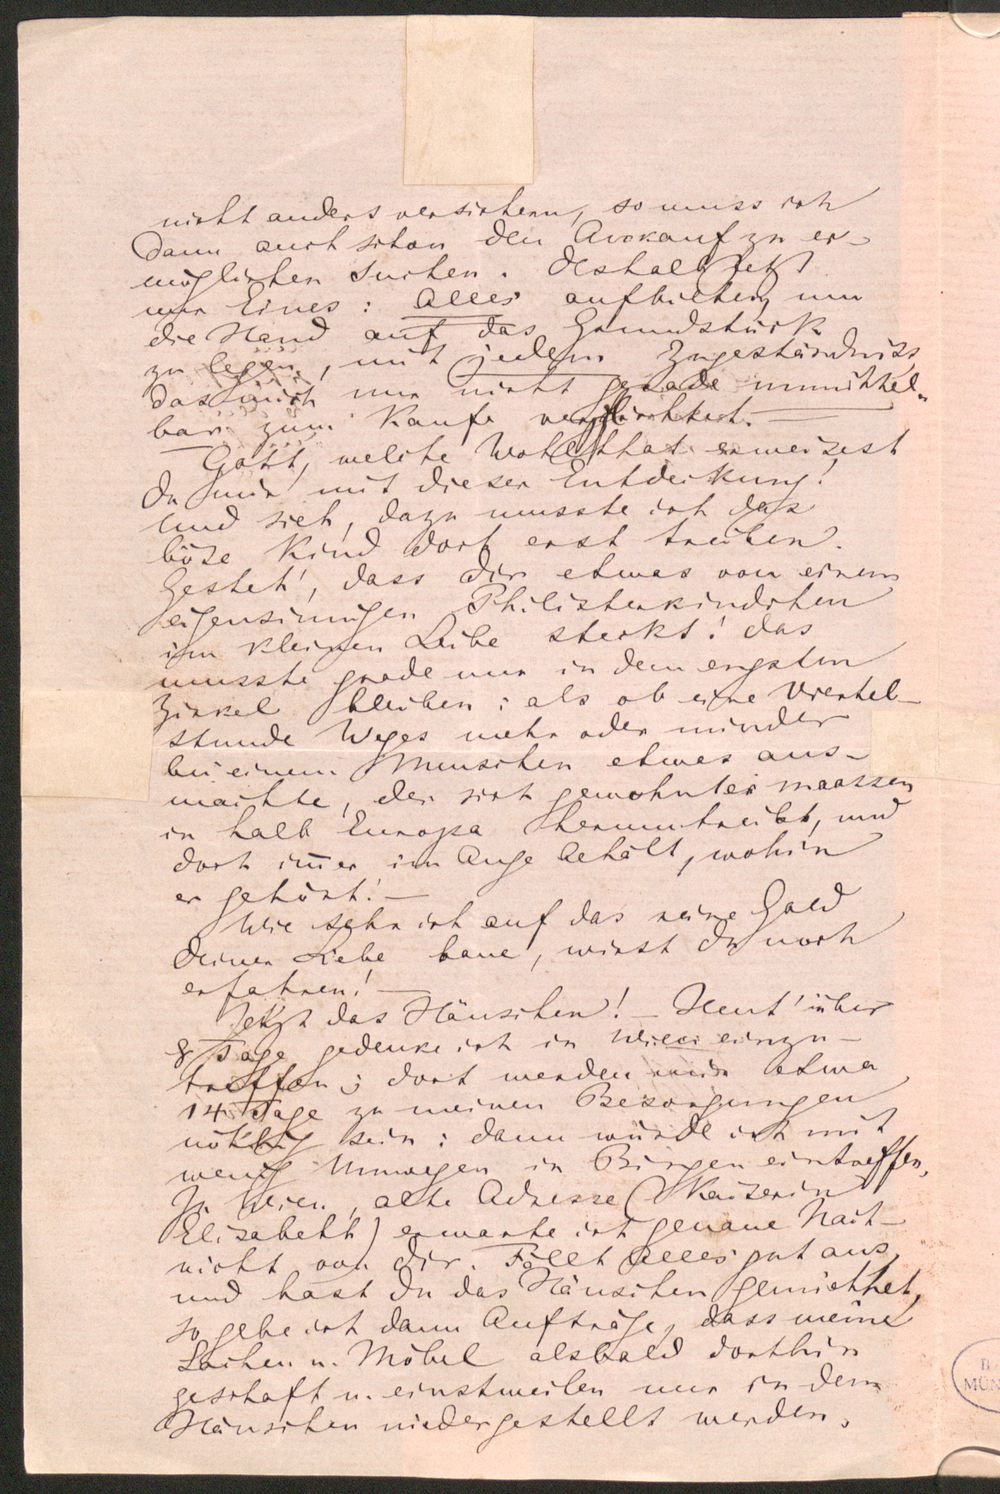 nicht anders versichern, so muss ich
dann auch schon den Ankauf zu er-
möglichen suchen. Deshalb jetzt
nur Eines: Alles aufbieten, um
die Hand auf das Grundstück
zu legen, mit jedem Zugeständniss
das mich nur nicht gerade unmittel-
bar zum Kaufe verpflichtet. —
Gott, welche Wohlthat erweisest
du mir mit dieser Entdeckung!
Und sieh, dazu musste ich das
böse Kind dort erst treiben.
Gesteh', dass dir etwas von einem
eigensinnigen Philisterkindchen
im kleinen Leibe steckt! das
musste grade nur in dem engsten
Zirkel bleiben: als ob eine Viertel-
stunde Weges mehr oder minder
bei einem Menschen etwas aus-
machte, der sich gewohnter maassen
in halb Europa herumtreibt, und
doch im̄er im Auge behält, wohin
er gehört! —
Wie sehr ich auf das reine Gold
deiner Liebe baue, wirst du noch
erfahren! —
Jetzt das Häuschen! — Heut' über
8 Tage gedenke ich in Wien einzu-
treffen; dort werden mir etwa
14 Tage zu meinen Besorgungen
nöthig sein: dann würde ich mit
wenig Umwegen in Bingen eintreffen.
In Wien, alte Adresse (Kaiserin
Elisabeth) erwarte ich genaue Nach-
richt von dir. Fällt Alles gut aus,
und hast du das Häuschen gemiethet,
so gebe ich dann Aufträge, dass meine
Sachen u. Möbel alsbald dorthin
geschafft u. einstweilen nur in dem
Häuschen niedergestellt werden.